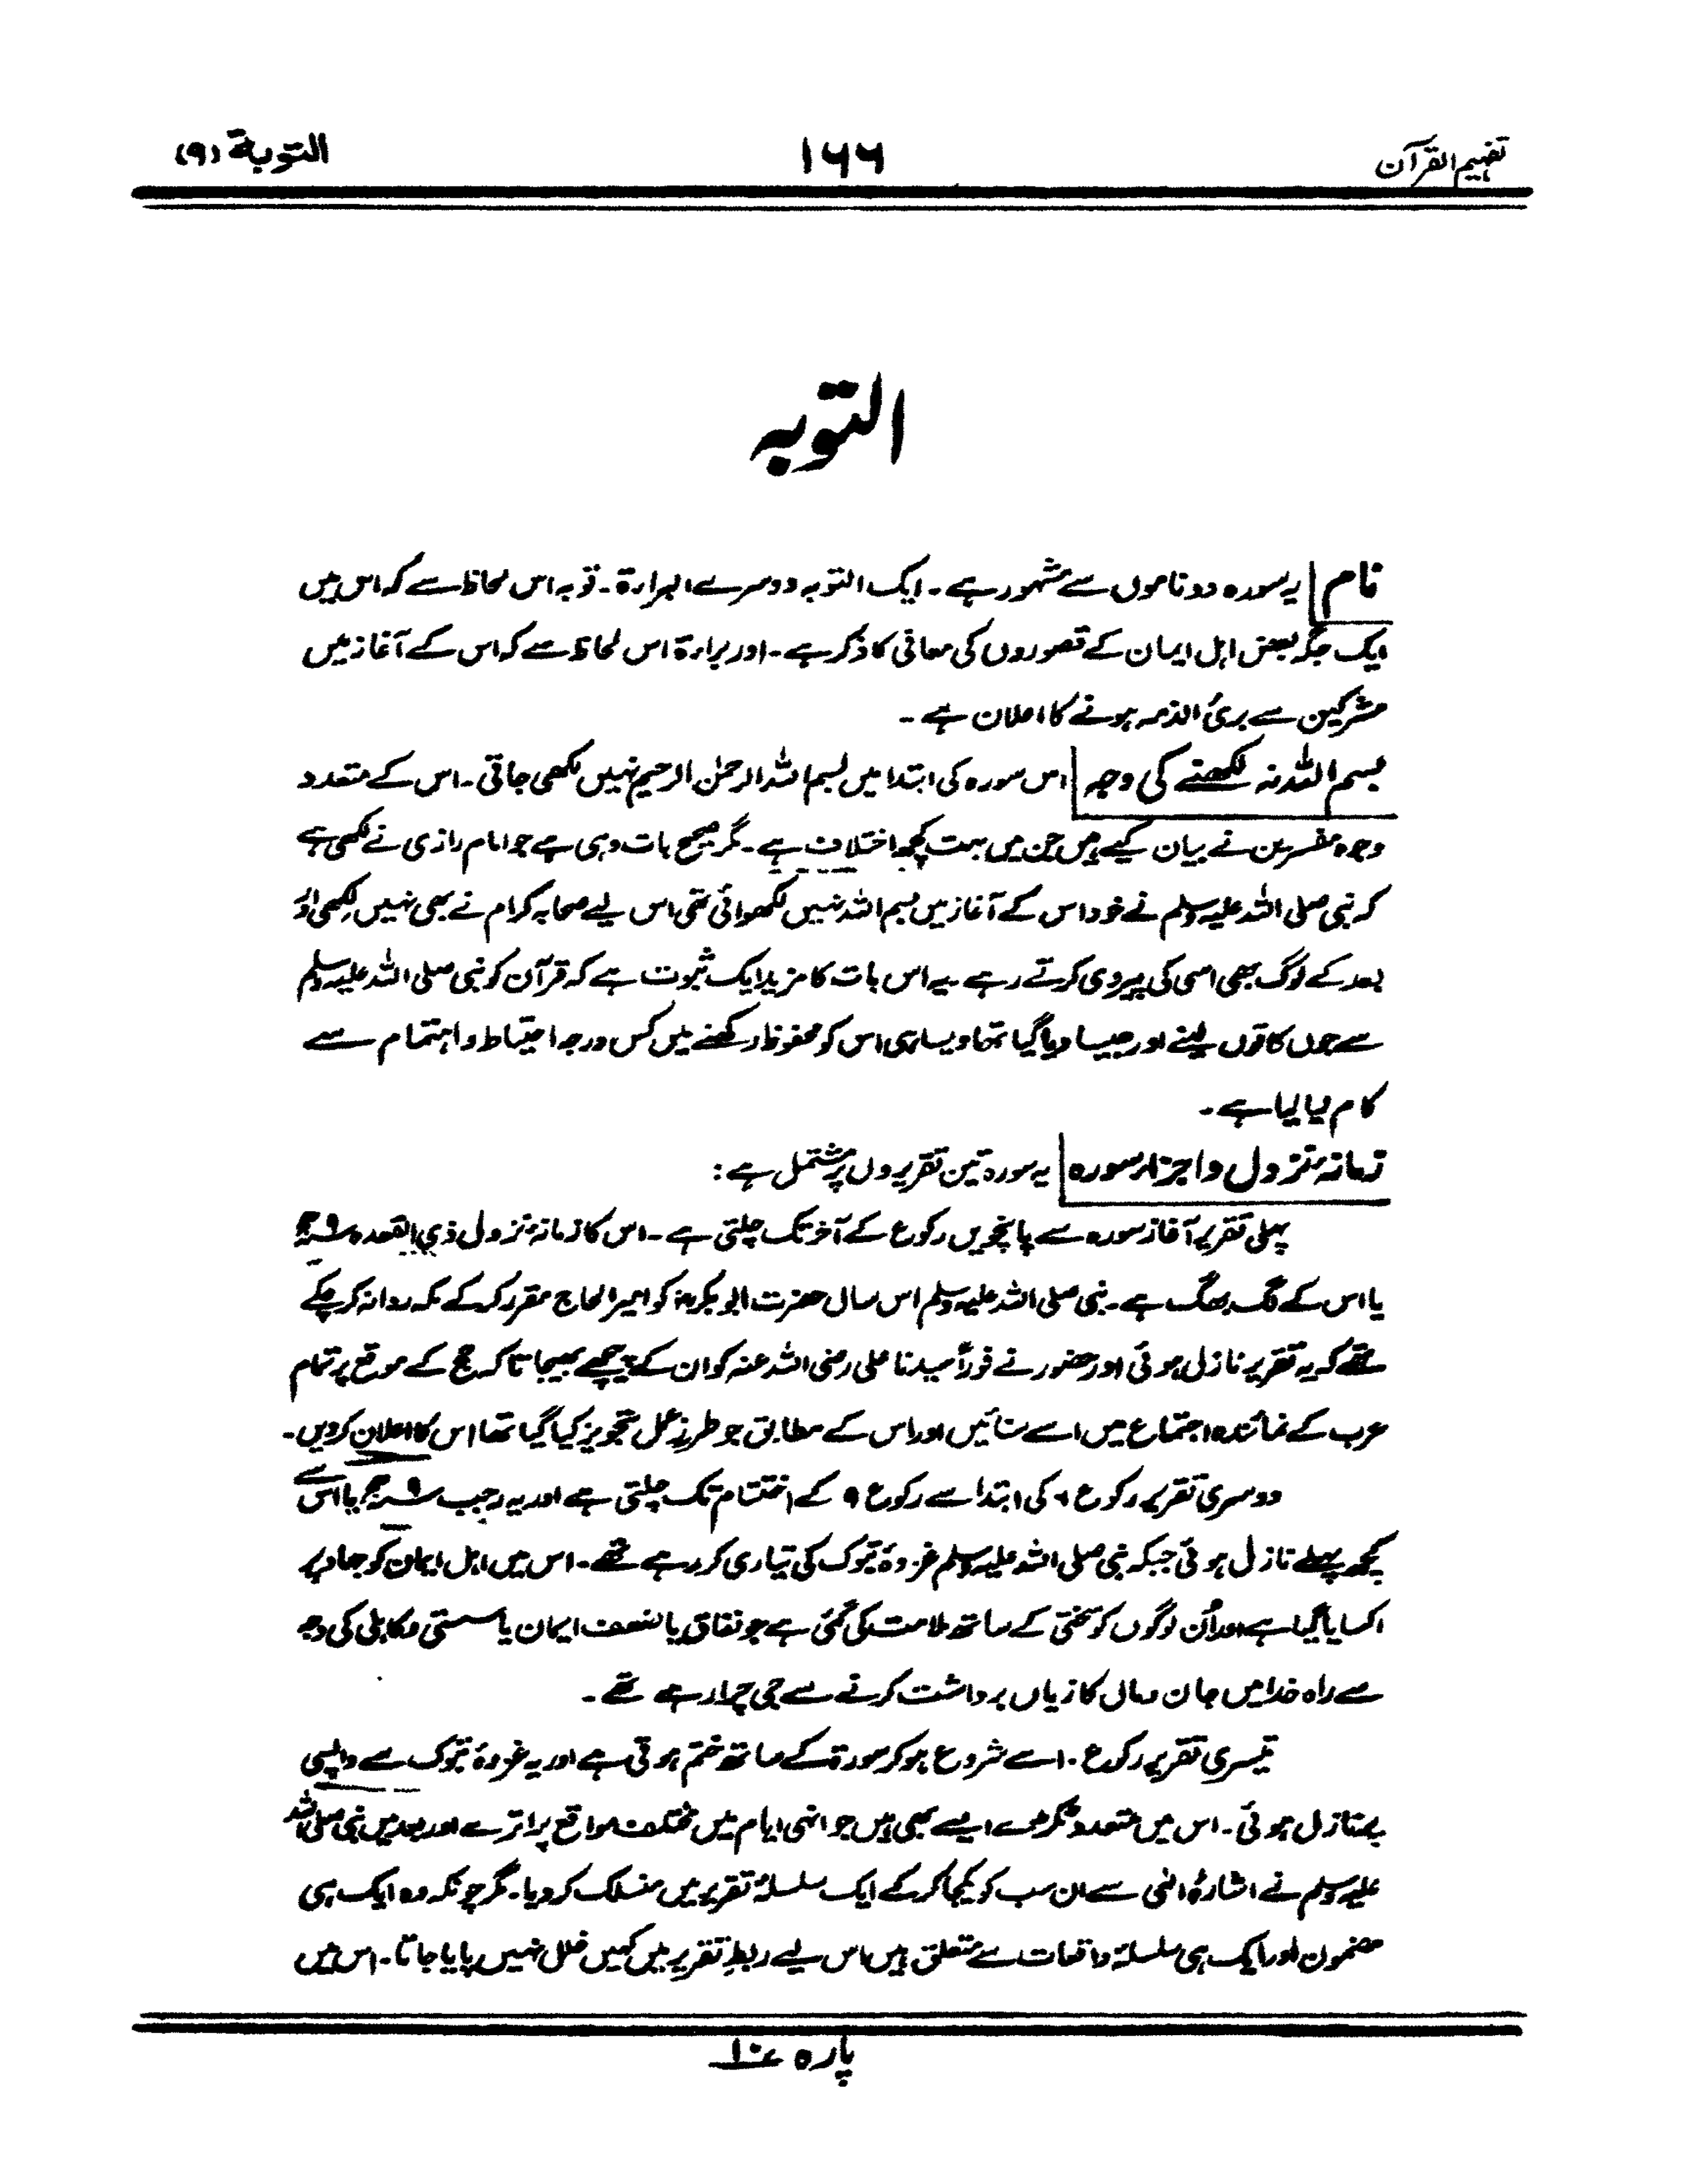 تفہیم القرآن
۱۶۶
التوبة (۹)
التوبہ
نام یہ سورہ دو ناموں سے مشہور ہے ۔ ایک التوبہ دوسرے البراءۃ ۔ توبہ اس لحاظ سے کہ اس میں
ایک جگہ بعض اہل ایمان کے قصوروں کی معافی کا ذکر ہے ۔ اور براءۃ اس لحاظ سے کہ اس کے آغاز میں
مشرکین سے بریٔ الذمہ ہونے کا اعلان ہے ۔
بسم اللہ نہ لکھنے کی وجہ اس سورہ کی ابتدا میں بسم اللہ الرحمٰن الرحیم نہیں لکھی جاتی ۔ اس کے متعدد
وجوہ مفسرین نے بیان کیے ہیں جن میں بہت کچھ اختلاف ہے ۔ مگر صحیح بات وہی ہے جو امام رازی نے لکھی ہے
کہ نبی صلی اللہ علیہ وسلم نے خود اس کے آغاز میں بسم اللہ نہیں لکھوائی تھی اس لیے صحابہ کرام نے بھی نہیں لکھی اور
بعد کے لوگ بھی اسی کی پیروی کرتے رہے ۔ یہ اس بات کا مزید ایک ثبوت ہے کہ قرآن کو نبی صلی اللہ علیہ وسلم
سے جوں کا توں لینے اور جیسا دیا گیا تھا ویسا ہی اس کو محفوظ رکھنے میں کس درجہ احتیاط و اہتمام سے
کام لیا گیا ہے ۔
زمانۂ نزول و اجزاء سورہ یہ سورۃ تین تقریروں پر مشتمل ہے :
پہلی تقریر آغاز سورہ سے پانچویں رکوع کے آخر تک چلتی ہے ۔ اس کا زمانۂ نزول ذی القعدہ ۹ھ
یا اس کے لگ بھگ ہے ۔ نبی صلی اللہ علیہ وسلم اس سال حضرت ابوبکرؓ کو امیر الحاج مقرر کر کے مکہ روانہ کر چکے
تھے کہ یہ تقریر نازل ہوئی اور حضور نے فوراً سیدنا علی رضی اللہ عنہ کو ان کے پیچھے بھیجا تاکہ حج کے موقع پر تمام
عرب کے نمائندہ اجتماع میں اسے سنائیں اور اس کے مطابق جو طرزِ عمل تجویز کیا گیا تھا اس کا اعلان کر دیں ۔
دوسری تقریر رکوع ۶ کی ابتدا سے رکوع ۹ کے اختتام تک چلتی ہے اور یہ رجب ۹ھ یا اس سے
کچھ پہلے نازل ہوئی جبکہ نبی صلی اللہ علیہ وسلم غزوۂ تبوک کی تیاری کر رہے تھے ۔ اس میں اہل ایمان کو جہاد پر
اکسایا گیا ہے اور اُن لوگوں کو سختی کے ساتھ ملامت کی گئی ہے جو نفاق یا ضعف ایمان یا سستی و کاہلی کی وجہ
سے راہ خدا میں جان و مال کا زیاں برداشت کرنے سے جی چرا رہے تھے ۔
تیسری تقریر رکوع ۱۰ سے شروع ہو کر سورۃ کے ساتھ ختم ہوتی ہے اور یہ غزوۂ تبوک سے واپسی
پر نازل ہوئی ۔ اس میں متعدد ٹکڑے ایسے بھی ہیں جو انہی ایام میں مختلف مواقع پر اترے اور بعد میں نبی صلی اللہ
علیہ وسلم نے اشارۂ الٰہی سے ان سب کو یکجا کر کے ایک سلسلۂ تقریر میں منسلک کر دیا ۔ مگر چونکہ وہ ایک ہی
مضمون اور ایک ہی سلسلۂ واقعات سے متعلق ہیں اس لیے ربطِ تقریر میں کہیں خلل نہیں پایا جاتا ۔ اس میں
پارہ ۱۰